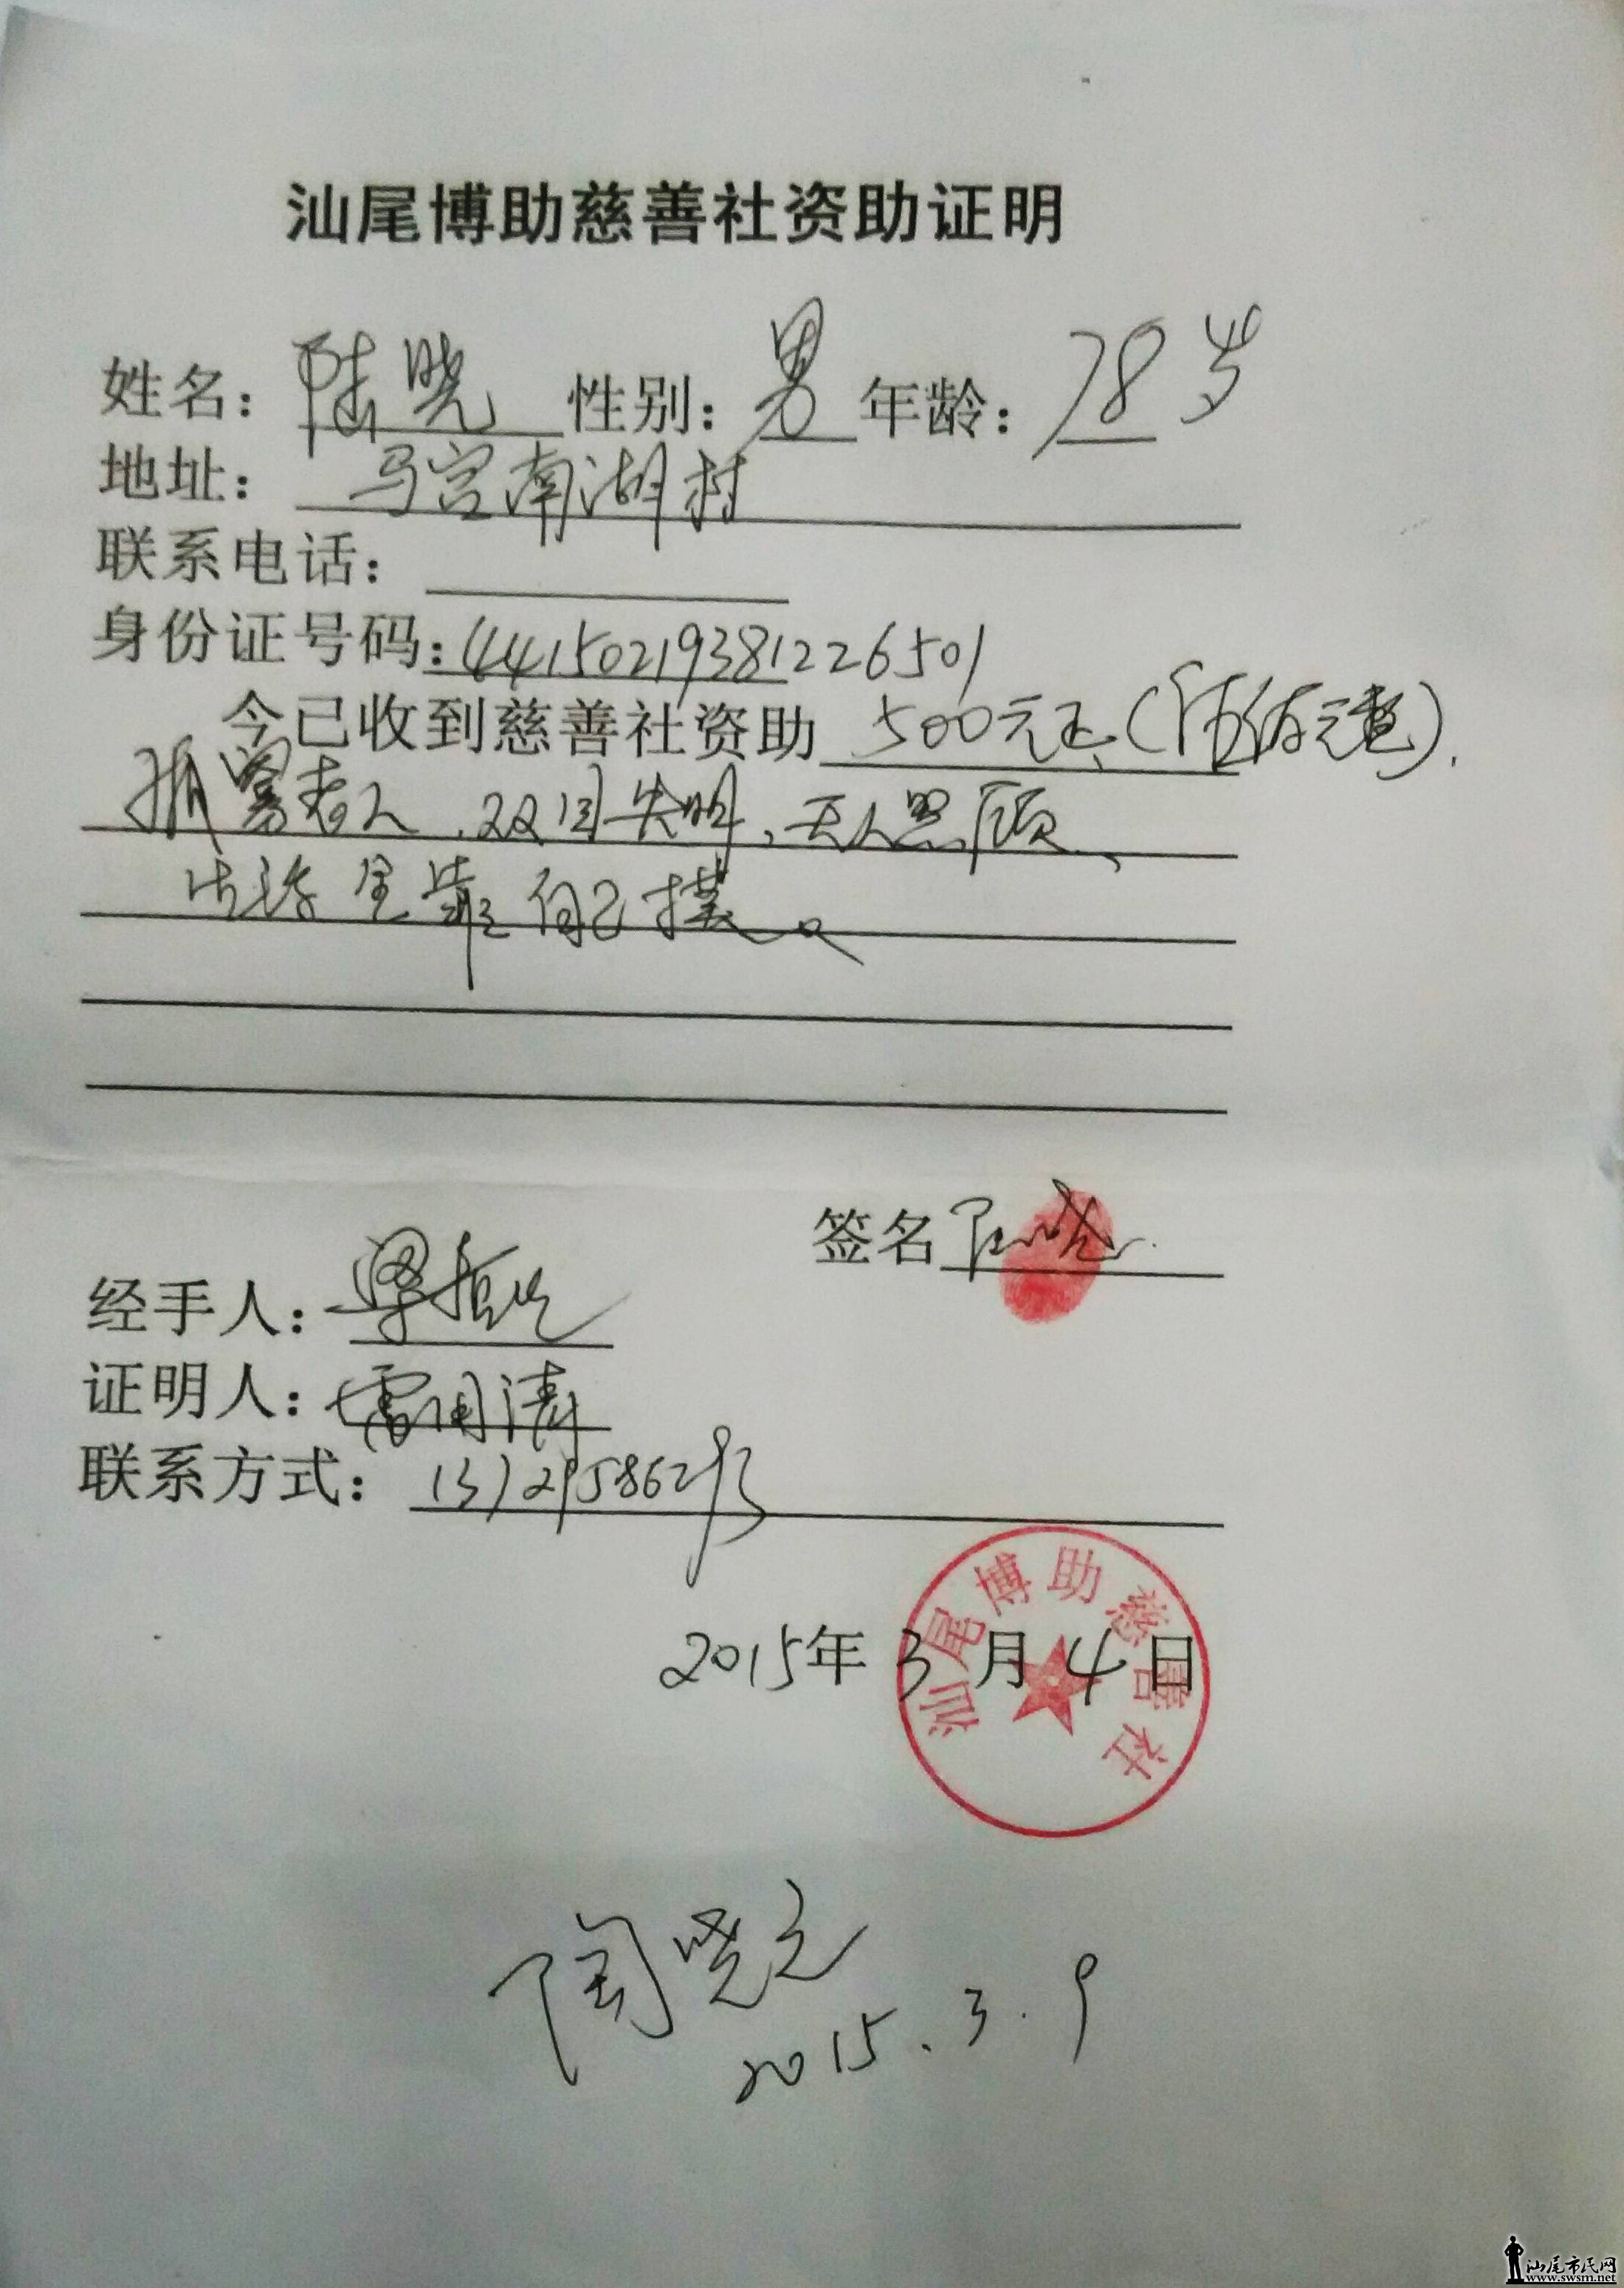 汕尾博助慈善社资助证明
姓名：陈晓 性别：男 年龄：78岁
地址：马宫南湖村
联系电话：
身份证号码：441502193812226501
今已收到慈善社资助 500元正（伍佰元整）.
孤寡老人，双目失明，无人照顾、
生活全靠自己摸。
签名 陈晓
经手人：
证明人：
联系方式：
2015年3月4日
汕尾博助慈善社
陶晓文
2015.3.9
汕尾市民网
www.swsm.net